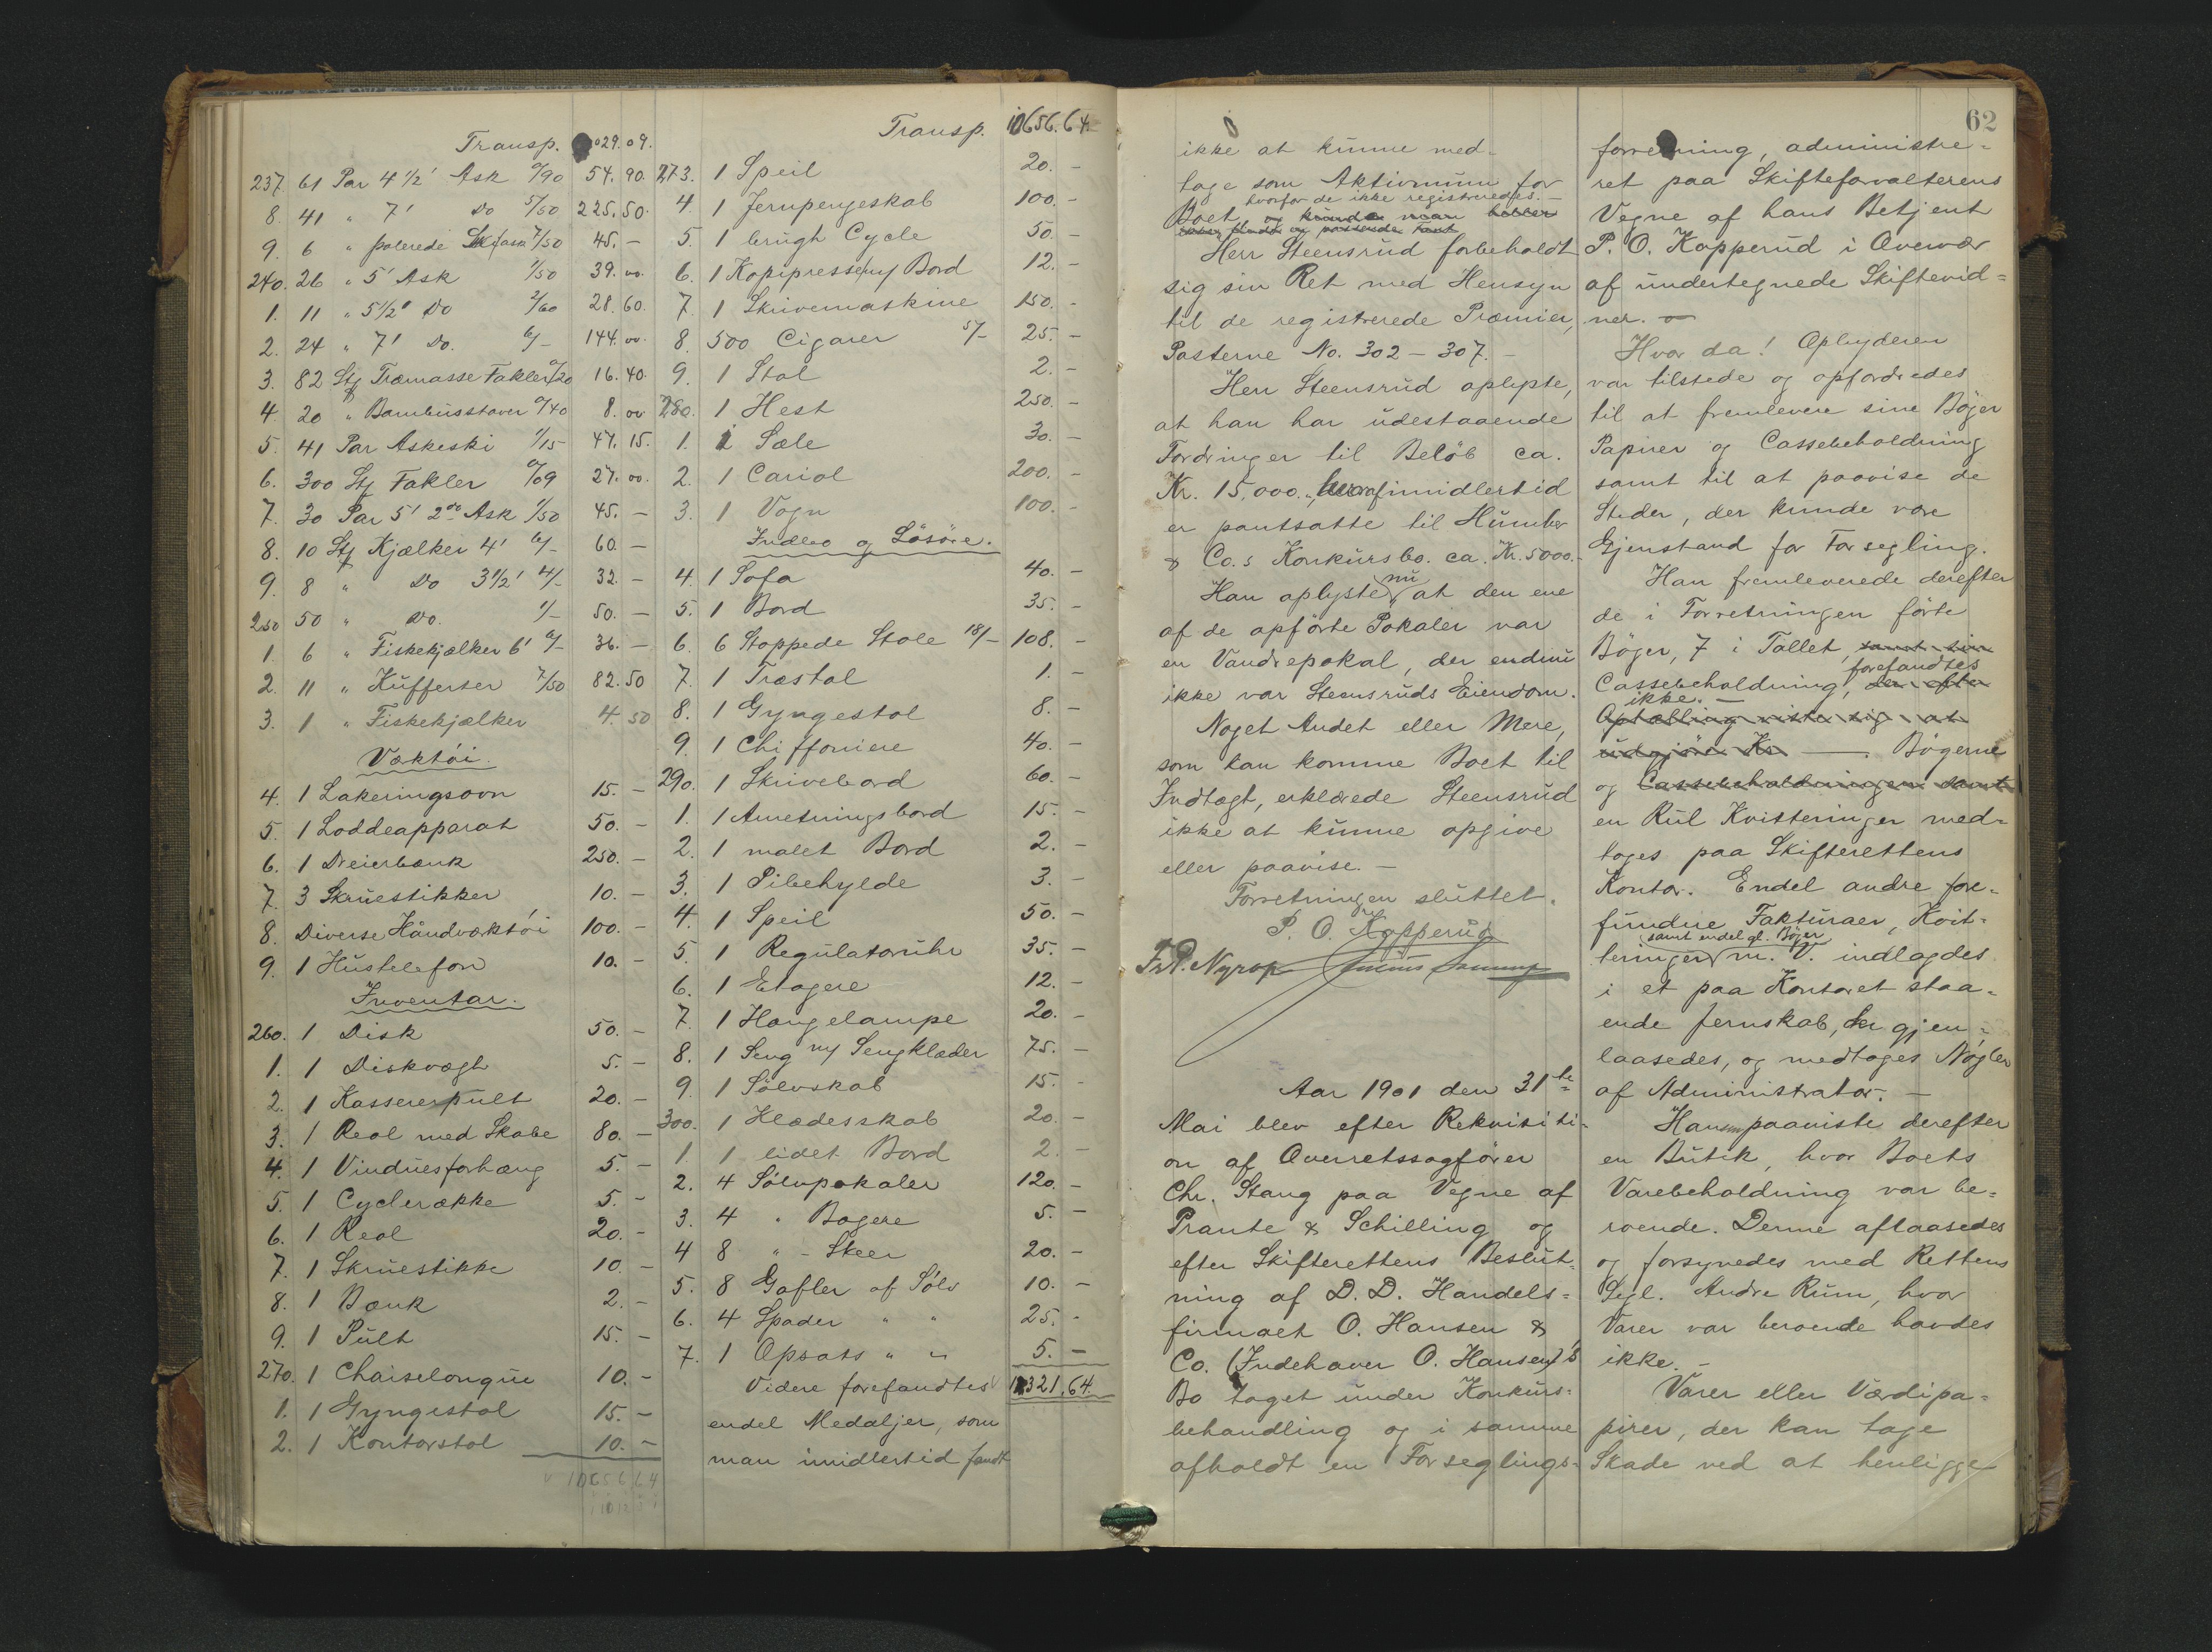 Transp. 029.09.
237. 61 Par 4 1/2' Ask 0/90 54.90.
8. 41 " 7' Do 5/50 225.50.
9. 6 " polerede 7/50 45.-
240. 26 " 5' Ask 1/50 39.00.
1. 11 " 5 1/2' Do 2/60 28.60.
2. 24 " 7' Do. 6/- 144.00.
3. 82 Stj Træmasse Fakler 0/20 16.40.
4. 20 " Bambusstaver 0/40 8.00
5. 41 Par Askeski 1/15 47.15.
6. 300 Stj Fakler 0/09 27.00.
7. 30 Par 5' 2den Ask 1/50 45.-
8. 10 Stj Kjælker 4' 6/- 60.-
9. 8 " Do 3 1/2' 4/- 32.-
250 50 " Do. 1/- 50.-
1. 6 " Fiskekjælker 6' 6/- 36.-
2. 11 " Kufferter 7/50 82.50
3. 1 " Fiskekjælker 4.50
Værktöi.
4. 1 Lakeringsovn 15.-
5. 1 Loddeapparat 50.-
6. 1 Dreierbænk 250.-
7. 3 Skruestikker 10.-
8. Diverse Håndværktöi 100.-
9. 1 Hustelefon 10.-
Inventar.
260. 1 Disk 50.-
1. 1 Diskvægt 5.-
2. 1 Kassererpult 20.-
3. 1 Reol med Skabe 80.-
4. 1 Vinduesforhæng 5.-
5. 1 Cyclerække 5.-
6. 1 Reol 20.-
7. 1 Skruestikke 10.-
8. 1 Bænk 2.-
9. 1 Pult 15.-
270. 1 Chaiselongue 10.-
1. 1 Gyngestol 15.-
2. 1 Kontorstol 10.-
10656.64
Transp. 10656.64
273. 1 Speil 20.-
4. 1 Jernpengeskab 100.-
5. 1 brugt Cycle 50.-
6. 1 Kopipresse m/ Bord 12.-
7. 1 Skrivemaskine 150.-
8. 500 Cigarer 5/- 25.-
9. 1 Stol 2.-
280. 1 Hest 250.-
1. 1 Sæle 30.-
2. 1 Cariol 200.-
3. 1 Vogn 100.-
Indbo og Lösöre.
4. 1 Sofa 40.-
5. 1 Bord 35.-
6. 6 Stoppede Stole 18/- 108.-
7. 1 Træstol 1.-
8. 1 Gyngestol 8.-
9. 1 Chiffoniere 40.-
290. 1 Skrivebord 60.-
1. 1 Anretningsbord 15.-
2. 1 malet Bord 2.-
3. 1 Pibehylde 3.-
4. 1 Speil 50.-
5. 1 Regulatoruhr 35.-
6. 1 Etagere 12.-
7. 1 Hængelampe 20.-
8. 1 Seng m/ Sengklæder 75.-
9. 1 Sölvskab 15.-
300. 1 Klædesskab 20.-
1. 1 lidet Bord 2.-
2. 4 Sölvpokaler 120.-
3. 4 " Bægere 5.-
4 8 " - Skeer 20.-
5. 8 Gafler af Sölv 10.-
6. 4 Spader " " 25.-
7. 1 Opsats " " 5.-
Videre forefandtes 12321.64.
endel Medaljer, som
man imidlertid fandt
ikke at kunne med-
tage som Aktivmum for
hvorfor de ikke registreredes.-
Boet, og kunde man heller
Herr Steensrud forbeholdt
sig sin Ret med Hensyn
til de registrerede Præmier,
Posterne No. 302 - 307.-
Herr Steensrud oplyste,
at han har udestaaende
Fordringer til Belöb ca.
Kr. 15,000., hvoraf imidlertid
er pantsatte til Humber
& Co.s Konkursbo. ca. Kr. 5000.-
Han oplyste nu at den ene
af de opförte Pokaler var
en Vandrepokal, der endnu
ikke var Steensruds Eiendom.
Noget Andet eller Mere,
som kan komme Boet til
Indtægt, erklærede Steensrud
ikke at kunne opgive
eller paavise.-
Forretningen sluttet.
P. O. Kopperud
Fr. P. Nyrop
Aar 1901 den 31te
Mai blev efter Rekvisiti-
on af Overretssagförer
Chr. Stang paa Vegne af
Prante & Schilling og
efter Skifterettens Beslut-
ning af D. D. Handels-
firmaet O. Hansen &
Co. (Indehaver O. Hansen)'s
Bo taget under Konkurs-
behandling og i samme
afholdt en Forseglings-
62
forretning, administre-
ret paa Skifteforvalterens
Vegne af hans Betjent
P. O. Kopperud i Overvær
af undertegnede Skiftevid-
ner.
Hvor da! Opbyderen
var tilstede og opfordredes
til at fremlevere sine Böger
Papirer og Cassebeholdning
samt til at paavise de
Steder, der kunde være
Gjenstand for Forsegling.
Han fremleverede derefter
de i Forretningen förte
Böger, 7 i Tallet, samt sin
forefandtes
Cassebeholdning, der efter
ikke.-
Optælling viste sig at
udgjöre Kr. Bögerne
og Cassebeholdningen samt
en Rul Kvitteringer med-
toges paa Skifterettens
Kontor. Endel andre fore-
fundne Fakturaer, Kvit-
samt endel gl. Böger
teringer m. V. indlagdes
i et paa Kontoret staa-
ende Jernskab, der gjen-
laasedes, og medtoges Nögler
af Administrator.-
Han paaviste derefter
en Butik, hvor Boets
Varebeholdning var be-
roende. Denne aflaasedes
og forsynedes med Rettens
Segl. Andre Rum, hvor
Varer var beroende havdes
ikke.-
Varer eller Værdipa-
pirer, der kan tage
Skade ved at henligge